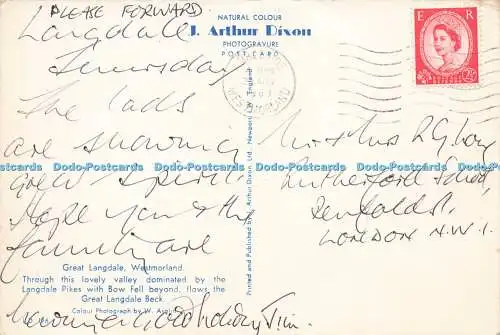 PLEASE FORWARD
NATURAL COLOUR
J. Arthur Dixon
PHOTOGRAVURE
POST CARD
E R
Langdale
The lads
are showing
great spirit
Hope you & the
family are
having a good holiday Jim.
Mr & Mrs R G
Rutherford
LONDON N.W.1.
WESTMORLAND
Printed and Published by J. Arthur Dixon, Ltd. Newport, I.W. England
Dodo-Postcards Dodo-Postcards Dodo-Postcards Dodo-Postcards Dodo-Postcards Dodo-Postcards
Great Langdale, Westmorland.
Through this lovely valley dominated by the
Langdale Pikes with Bow Fell beyond, flows the
Great Langdale Beck.
Colour Photograph by W.